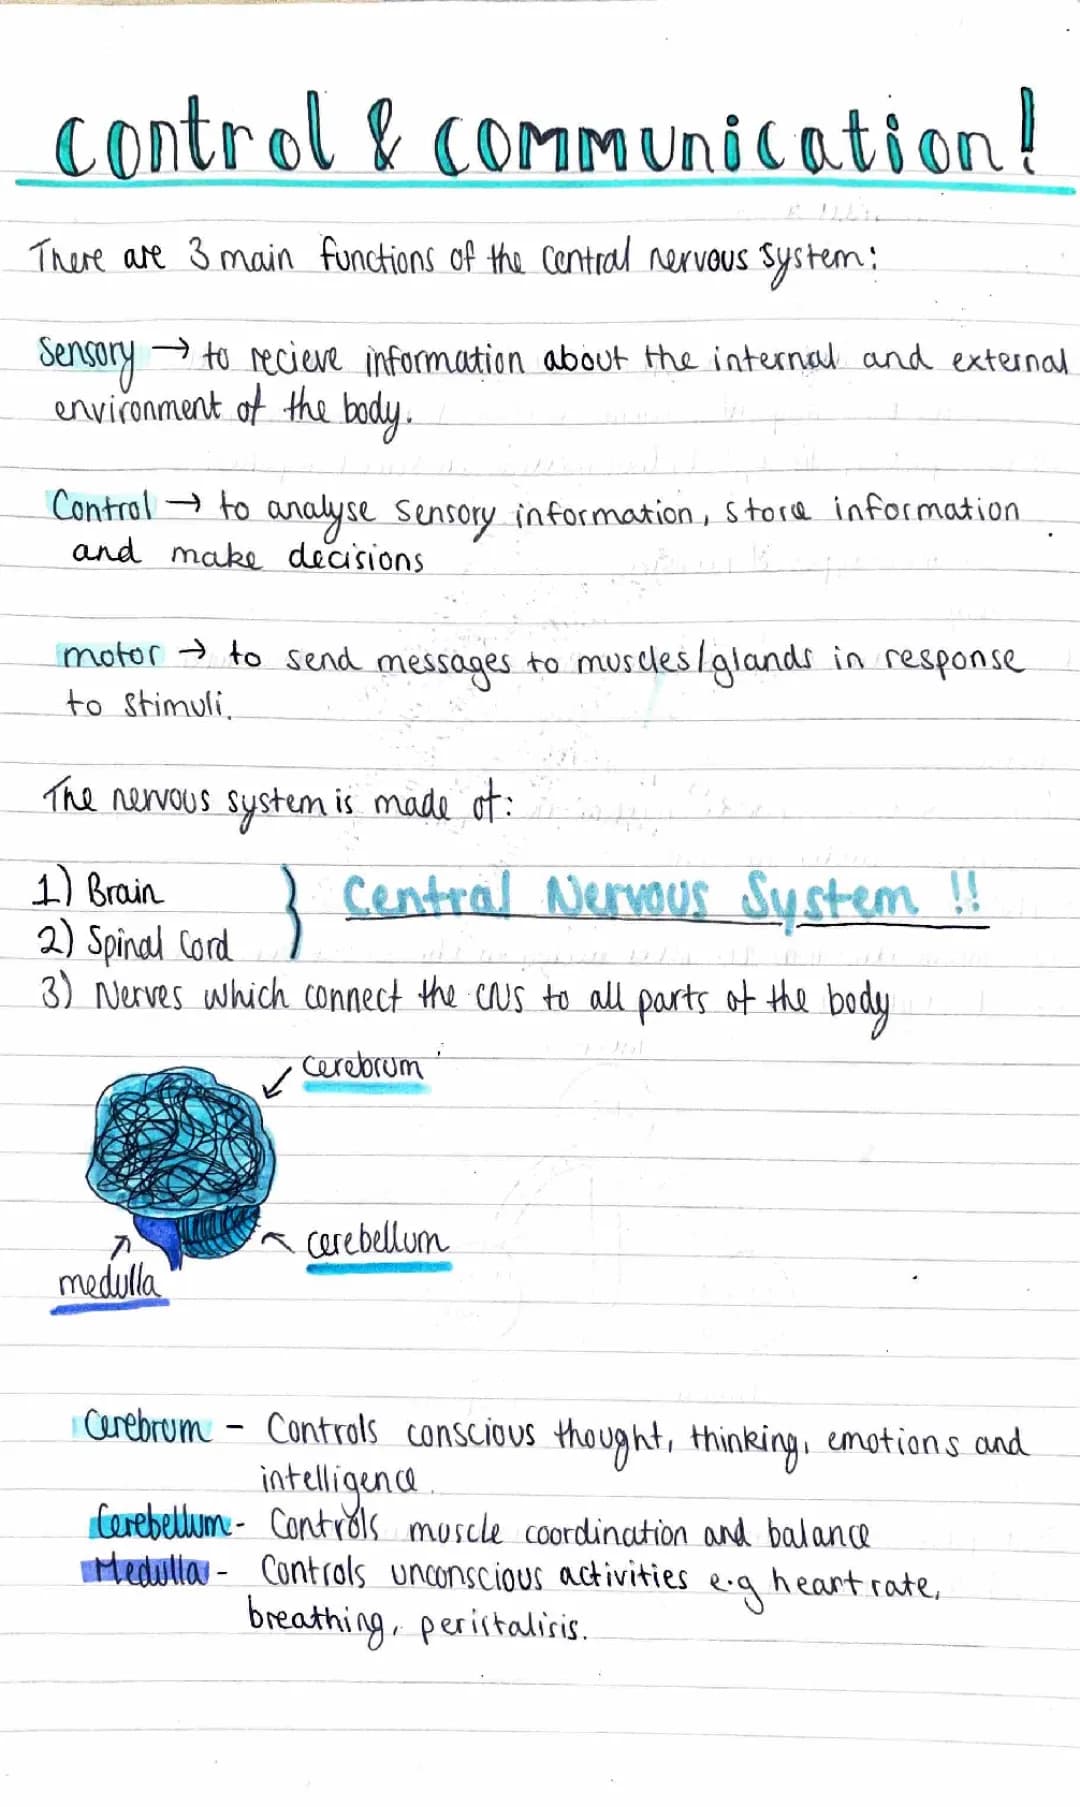 control & communication!
There are 3 main functions of the central nervous system:
Sensory → to recieve information about the internal and external
environment of the body.
Control → to analyse sensory information, store information
and make decisions
motor → to send messages to muscles/glands in response
to stimuli.
The nervous system is made of:
1) Brain
2) Spinal Cord
} Central Nervous System !!
3) Nerves which connect the CNS to all parts of the body
cerebrum
cerebellum
medulla
Cerebrum - Controls conscious thought, thinking, emotions and
intelligence.
Cerebellum - Controls muscle coordination and balance
Medulla - Controls unconscious activities e.g heart rate,
breathing, peristalisis.